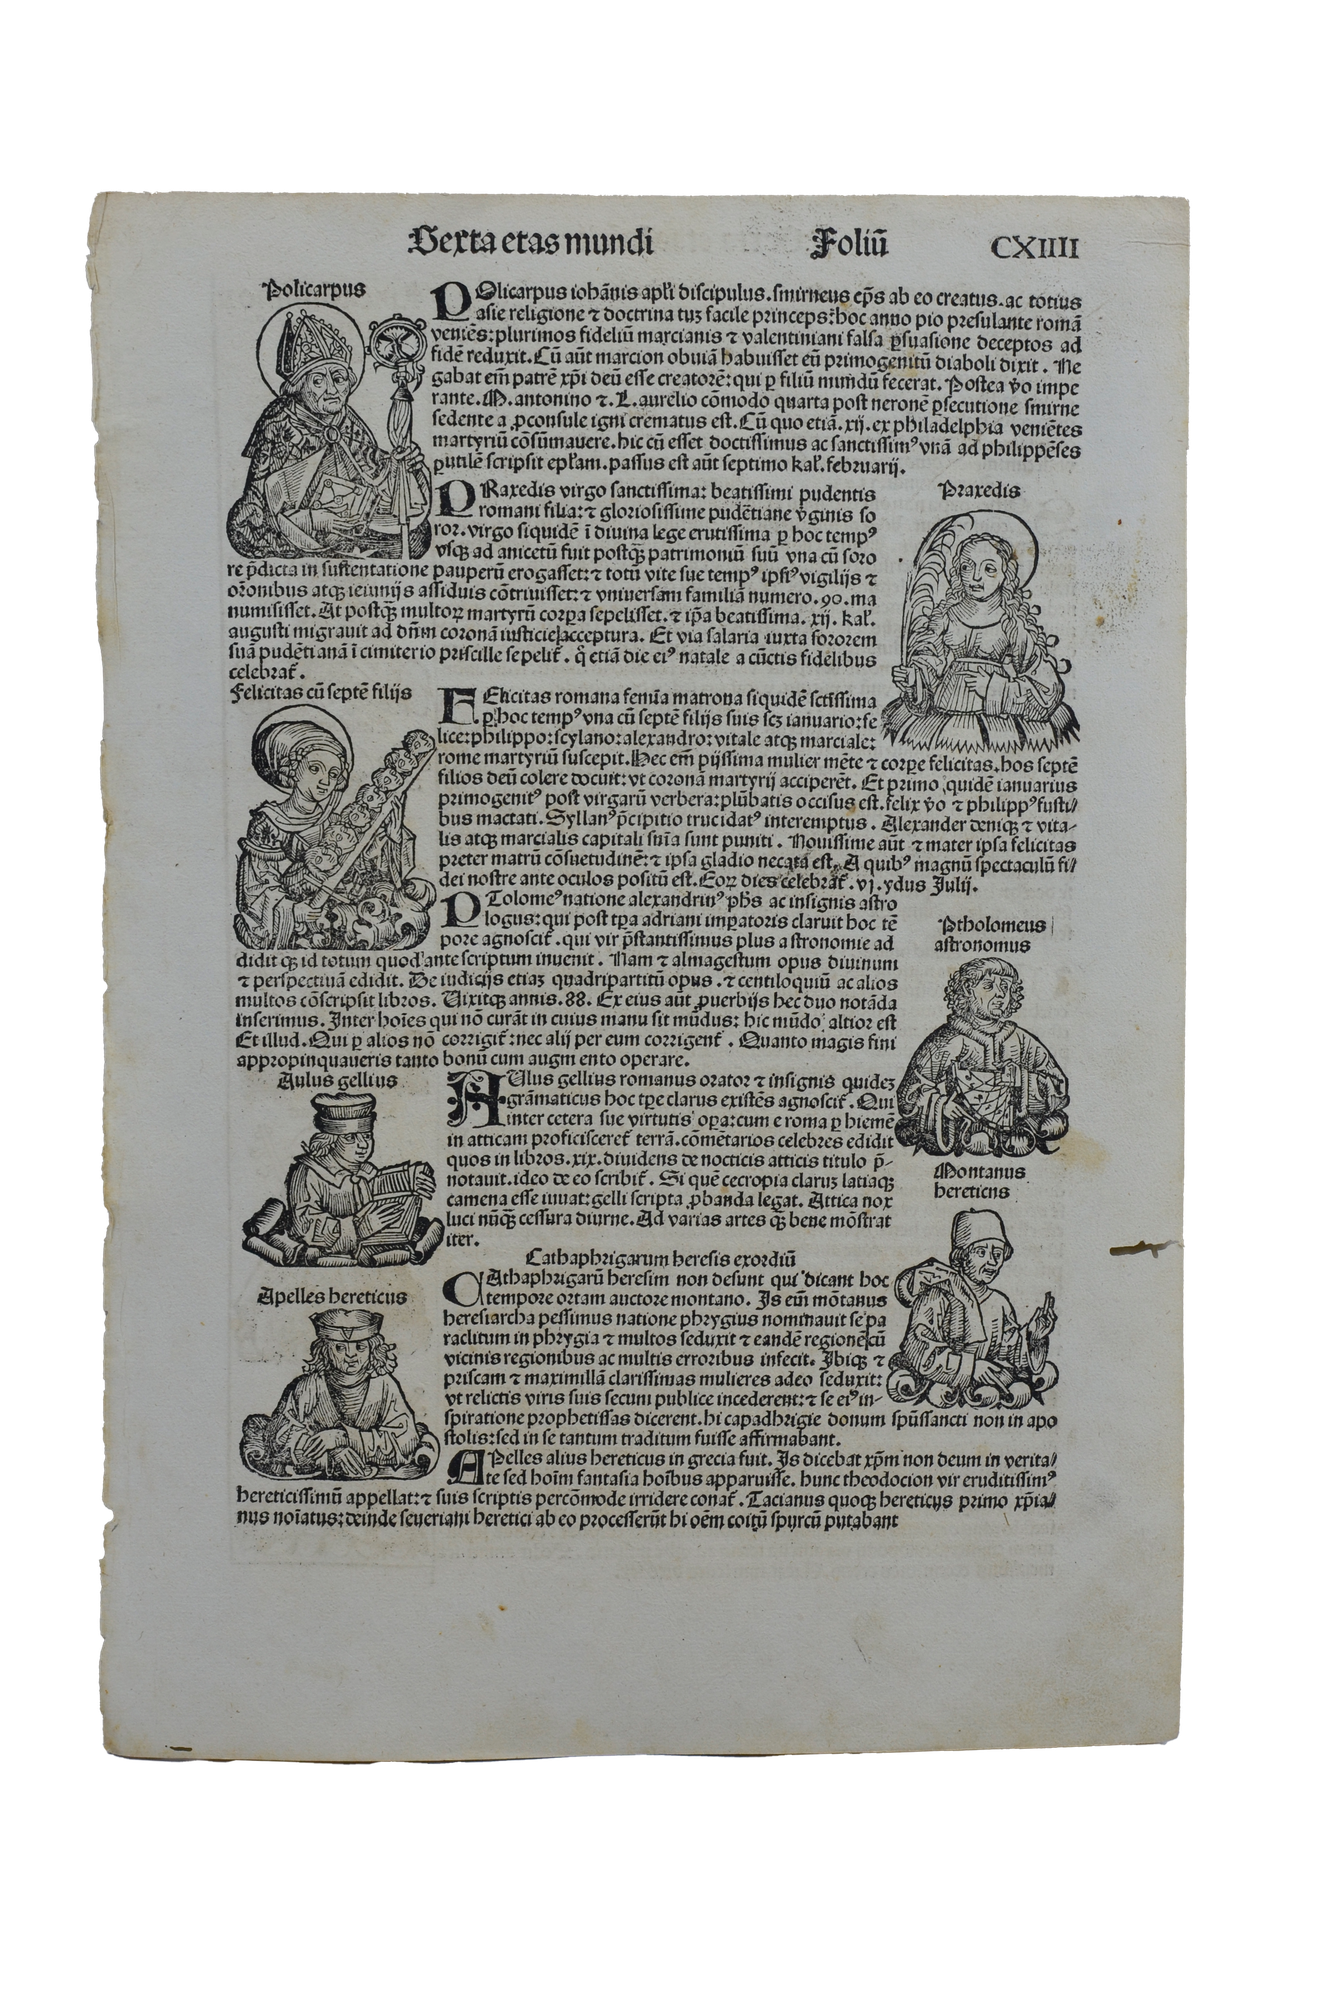 Sexta etas mundi Foliū CXIIII
Policarpus
POlicarpus iohānis apłi discipulus. smirneus ep̄s ab eo creatus. ac totius
asie religione ⁊ doctrina tuꝫ facile princeps: hoc anno pio presulante romā
veniēs: plurimos fideliū marcianis ⁊ valentiniani falsa ꝑsuasione deceptos ad
fidē reduxit. Cū aūt marcion obuiā habuisset eū primogenitū diaboli dixit. Ne
gabat em̄ patrē xp̄i deū esse creatorē: qui ꝑ filiū mundū fecerat. Postea v̄o impe
rante. M. antonino ⁊. L. aurelio cōmodo quarta post neronē ꝑsecutione smirne
sedente a ꝓconsule igni crematus est. Cū quo etiā. xij. ex philadelphia veniētes
martyriū cōsūmauere. hic cū esset doctissimus ac sanctissimꝰ vnā ad philippēses
ꝑutilē scripsit epłam. passus est aūt septimo kał. februarij.
Praxedis
PRaxedis virgo sanctissima: beatissimi pudentis
romani filia: ⁊ gloriosissime pudētiane v̄ginis so
ror. virgo siquidē ī diuina lege erutissima ꝑ hoc tempꝰ
vsqꝫ ad anicetū fuit postqꝫ patrimoniū suū vna cū soro
re p̄dicta in sustentatione pauperū erogasset: ⁊ totū vite sue tempꝰ ipsiꝰ vigilijs ⁊
orōnibus atqꝫ ieiunijs assiduis cōtriuisset: ⁊ vniuersam familiā numero. 90. ma
numisisset. At postqꝫ multoꝝ martyrū corꝑa sepelisset. ⁊ ip̄a beatissima. xij. kał.
augusti migrauit ad dn̄m coronā iusticie acceptura. Et via salaria iuxta sororem
suā pudētianā ī cimiterio priscille sepelit̄. q̄ etiā die eiꝰ natale a cūctis fidelibus
celebrat̄.
Felicitas cū septē filijs
FElicitas romana femīa matrona siquidē sctīssima
ꝑ hoc tempꝰ vna cū septē filijs suis scꝫ ianuario: fe
lice: philippo: scylano: alexandro: vitale atqꝫ marciale:
rome martyriū suscepit. Hec em̄ pijssima mulier mēte ⁊ corꝑe felicitas. hos septē
filios deū colere docuit: vt coronā martyrij acciperēt. Et primo quidē ianuarius
primogenitꝰ post virgarū verbera: plūbatis occisus est. felix v̄o ⁊ philippꝰ fusti/
bus mactati. Syllanꝰ p̄cipitio trucidatꝰ interemptus. Alexander deniqꝫ ⁊ vita-
lis atqꝫ marcialis capitali sn̄ia sunt puniti. Nouissime aūt ⁊ mater ipsa felicitas
preter matrū cōsuetudinē: ⁊ ipsa gladio necata est. A quibꝰ magnū spectaculū fi/
dei nostre ante oculos positū est. Eoꝝ dies celebrat̄. vj. ydus Julij.
Ptholomeus
astronomus
PTolomeꝰ natione alexandrinꝰ ph̄s ac insignis astro
logus: qui post tꝑa adriani imꝑatoris claruit hoc tē
pore agnoscit̄. qui vir p̄stantissimus plus astronomie ad
didit qꝫ id totum quod ante scriptum inuenit. Nam ⁊ almagestum opus diuinum
⁊ perspectiuā edidit. De iudicijs etiaꝫ quadripartitū opus. ⁊ centiloquiū ac alios
multos cōscripsit libros. Uixitqꝫ annis. 88. Ex eius aūt ꝓuerbijs hec duo notāda
inserimus. Inter hoīes qui nō curāt in cuius manu sit mūdus: hic mūdo altior est
Et illud. Qui ꝑ alios nō corrigit̄: nec alij per eum corrigent̄. Quanto magis fini
appropinquaueris tanto bonū cum augmento operare.
Aulus gellius
AUlus gellius romanus orator ⁊ insignis quideꝫ
grāmaticus hoc tꝑe clarus existēs agnoscit̄. Qui
inter cetera sue virtutis oꝑa: cum e roma ꝑ hiemē
in atticam proficisceret̄ terrā. cōmētarios celebres edidit
quos in libros. xix. diuidens de nocticis atticis titulo p̄-
notauit. ideo de eo scribit̄. Si quē cecropia claruꝫ latiaqꝫ
camena esse iuuat: gelli scripta ꝓbanda legat. Attica nox
luci nūqꝫ cessura diurne. Ad varias artes qꝫ bene mōstrat
iter.
Montanus
hereticus
Cathaphrigarum heresis exordiū
CAthaphrigarū heresim non desunt qui dicant hoc
tempore ortam auctore montano. Is em̄ mōtanus
heresiarcha pessimus natione phrygius nominauit se pa
raclitum in phrygia ⁊ multos seduxit ⁊ eandē regionē cū
vicinis regionibus ac multis erroribus infecit. Ibiqꝫ ⁊
priscam ⁊ maximillā clarissimas mulieres adeo seduxit:
vt relictis viris suis secum publice incederent: ⁊ se eiꝰ in-
spiratione prophetissas dicerent. hi capadhrigie donum spūssancti non in apo
stolis: sed in se tantum traditum fuisse affirmabant.
Apelles hereticus
APelles alius hereticus in grecia fuit. Is dicebat xp̄m non deum in verita/
te sed hoīm fantasia hoībus apparuisse. hunc theodocion vir eruditissimꝰ
hereticissimū appellat: ⁊ suis scriptis percōmode irridere conat̄. Tacianus quoqꝫ hereticus primo xp̄ia/
nus noīatus: deinde seueriani heretici ab eo processerūt hi oēm coitū spurcū putabant